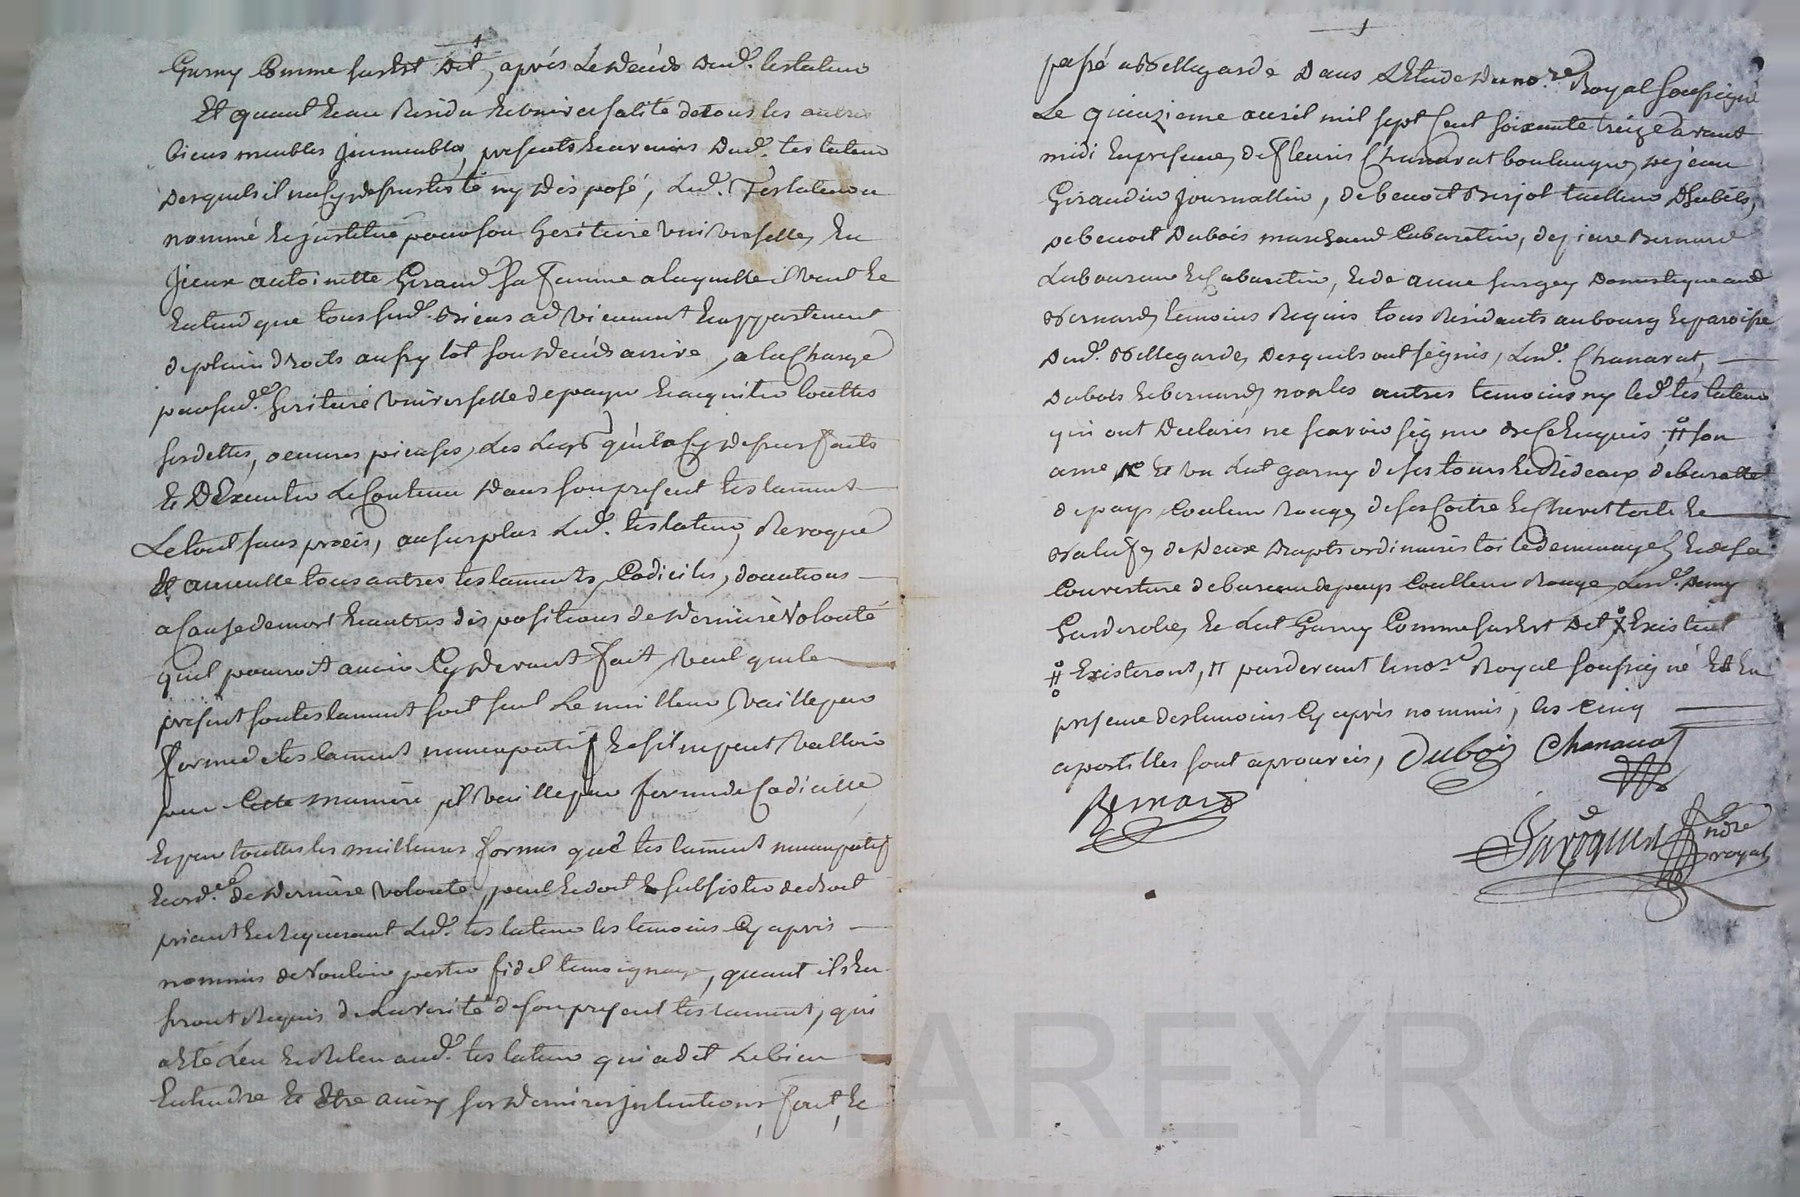 Garny Comme sus Est Dit, après Le Déceds Dud. testateur
Et quant Eau Residu Et universalité de tous les autres
biens meubles jmmeubles, presents Et avenirs Dud. testateur
Desquels il na Cy dessus testé ny Disposé, Led. Testateur a
nommé Et jnstitué pour son heritiere universelle, En
jceux antoinette Giraud sa femme a laquelle il veut Et
Entend que tous sesd. Biens adviennent Et appartiennent
de plein droits aussy tot son déceds arrivé, a la Charge
pour sad. heritiere universelle de payer Et acquitter touttes
ses dettes, oeuvres pieuses, Les Legs qu'il a Cy dessus faits
Et D'Executer Le Contenu Dans son present testament
Le tout sans procès, au surplus Led. testateur, Revoque
Et annulle tous autres testaments, Codiciles, donnations
a Cause de mort Et autres dispositions de Derniere Volonté
quil pourroit avoir Cy devant fait, veut que le
present son testament soit seul Le meilleur, vaille par
forme de testament nuncupatif Et s'il ne peut valloir
par Cette maniere, jl vaille par forme de Codicille
Et par touttes les meilleures formes que testament nuncupatif
Et ord.ce de Derniere volonté, peut Et doit Et subsister de droit
priant Et Requerant Led. testateur les temoins Cy après
nommés de vouloir porter fidel temoignage, quant ils En
seront Requis de La verité de son present testament, qui
a Eté Leu Et Releu aud. testateur qui a dit Le bien
Entendre Et Etre ainsy ses Dernieres jntentions, fait, Et
passé a Bellegarde Dans L'Etude Du no.re Royal soussigné
Le quinzieme avril mil sept Cent soixante treize avant
midi En presence, de fleuris Chanavat boulanger, de jean
Giraudin journallier, de benoit Brijot tailleur D'habits,
de benoit Dubois marchand Cabaretier, de piere Bernard
Laboureur Et Cabaretier, Et de anne Domestique aud.
Bernard, temoins Requis tous Residents au bourg Et paroisse
Dud. Bellegarde, Desquels ont signés, Lesd. Chanavat,
Dubois Et bernard, non les autres temoins ny led. testateur
qui ont Declarés ne scavoir signer de Ce Enquis, # son
ame, Et un Lit garny de ses tours Et Rideaux de buratte
de pays Couleur Rouge, de ses Coitre Et Chevet toile Et
Balufe, de deux Drapts ordinaires toile de menage, Et de sa
Couverture de bureau de pays Coulleur Rouge, Lesd.
Garderobe, Et Lit Garny Comme sus Est Dit, Existent
Existeront, # pardevant le no.re Royal soussigné Et En
presence des temoins Cy après nommés, les Cinq
apostilles sont aprouvés, Dubois Chanavat
Bernard
n.re
royal